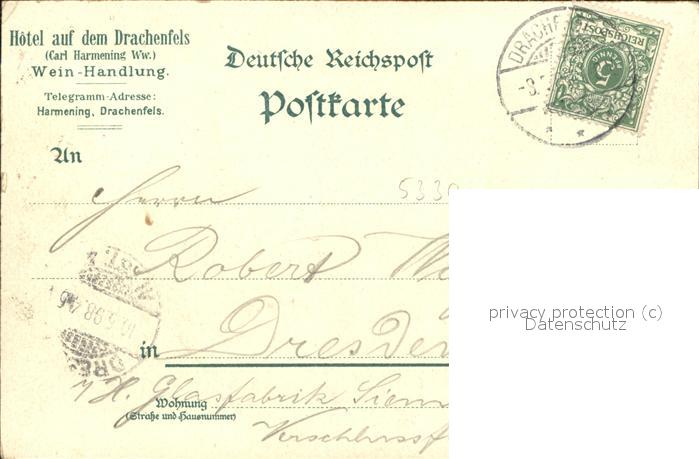 Hôtel auf dem Drachenfels
(Carl Harmening Ww.)
Wein-Handlung.
Telegramm-Adresse:
Harmening, Drachenfels.
Deutsche Reichspost
Postkarte
DRACHE
REICHSPOST
5
PFENNIG
An
5330
Herrn
Robert
Dresden
in
Glasfabrik Siem
Wohnung
(Straße und Hausnummer)
DRE
98
privacy protection (c)
Datenschutz